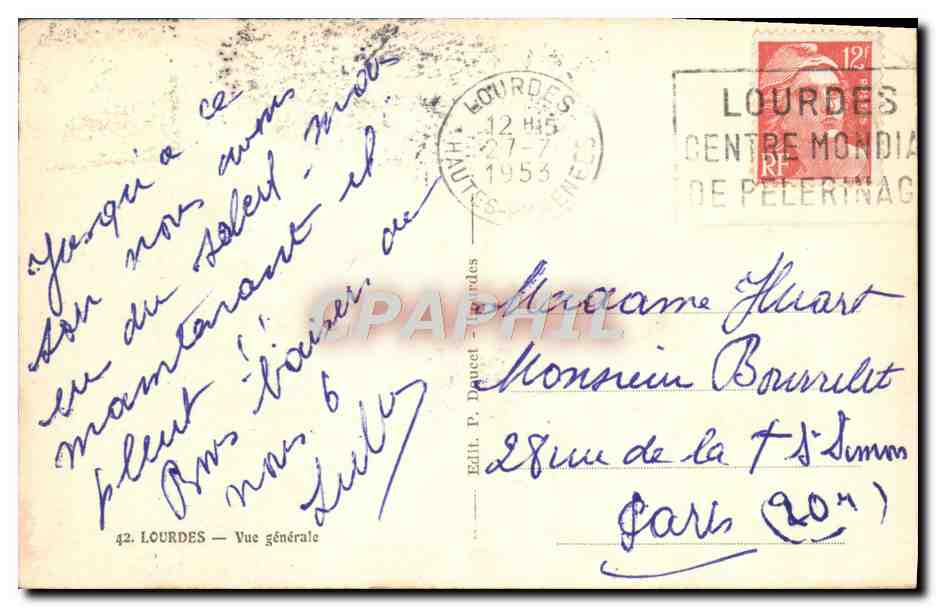 Jusqu'a ce
soir nous avons
eu du soleil - mais
maintenant il
pleut !
Bons baisers de
nous 6
42. LOURDES — Vue générale
Edit. P. Doucet - Lourdes
LOURDES
12 H 15
27-7
1953
HAUTES-PYRENEES
12F
RF
LOURDES
CENTRE MONDIA
DE PELERINAG
Madame Huart
Monsieur Bourrelet
28 rue de la + St Simon
Paris (20e)
CPAPHIL